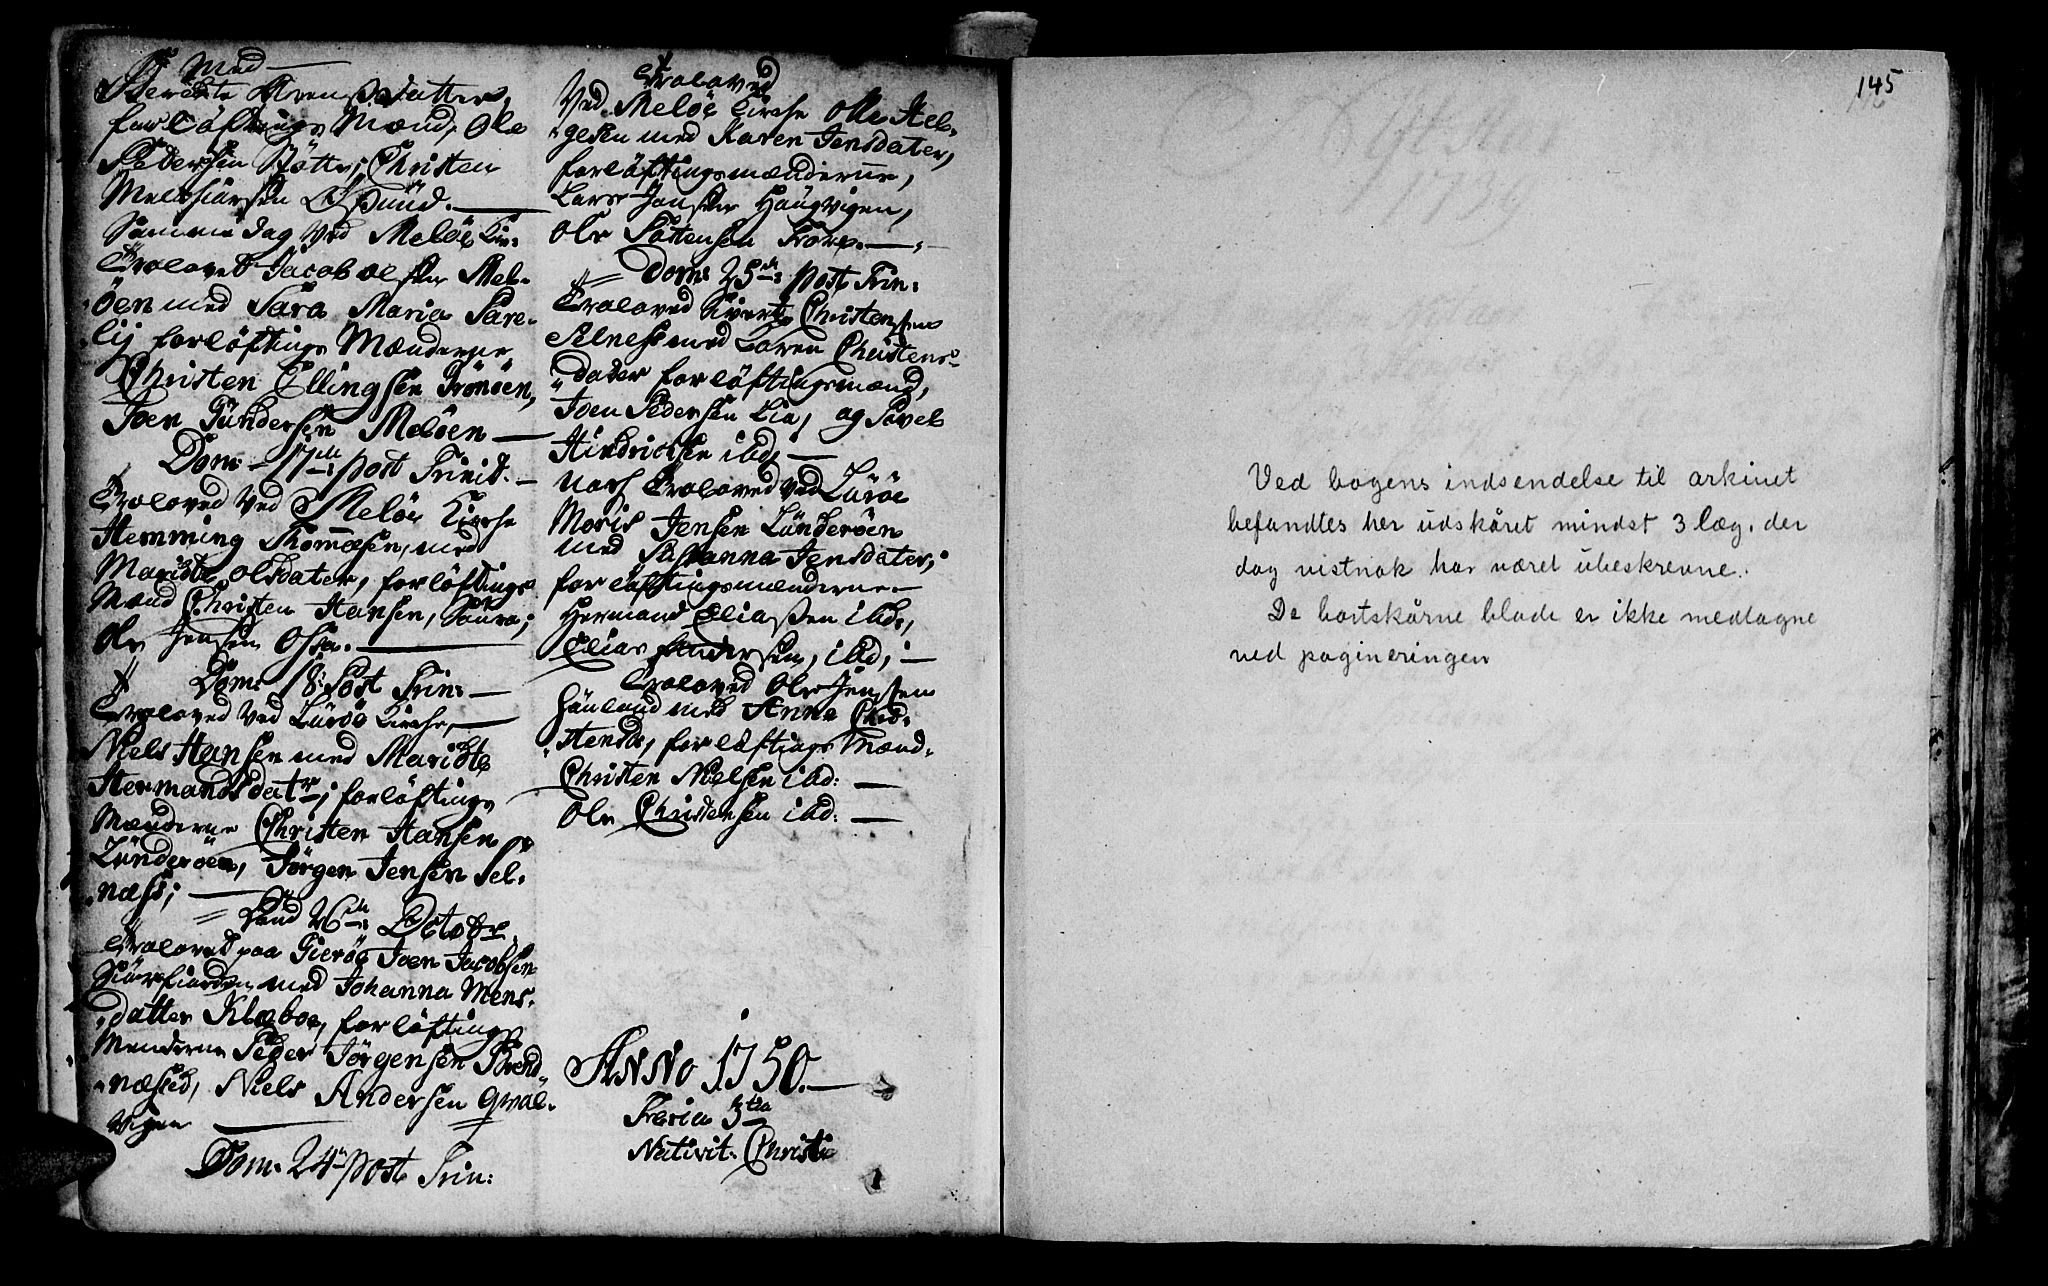 Med
Berethe Arens datter,
forløftings Mænd, Ole
Pedersen Støtt, Christen
Melchiorsen Øsund.
Samme dag ved Meløe Kir:
Troloved Jacob olsen Mel-
øen med Sara Maria Pare-
lij forløftings Mænderne
Christen Ellingsen Grönöen,
Joen Gundersen Meløen
Dom: 17de post Trinit.
Troloved ved Meløe Kirche
Hemming Thomæsen, med
Marithe olsdater, forløftings
Mænd Christen Hansen, Saura;
ole Jensen Ossa.
Dom: 18. Post Trin:
Troloved ved Lurøe Kirche,
Niels Hansen med Marithe
Hermandsdatr; forløftings
Mænderne Christen Hansen
Lunderöen, Jørgen Jensen Sel-
næss;
26de October
Troloved paa Gierøe Joen Jacobsen
Siørfiorden med Johanna Mens-
datter Klæboe, forløftings
Menderne Peder Jørgensen Brend-
næsed, Niels Andersen Qval-
vigen
Dom: 24 post Trin:
Troloved
Ved Meløe Kirche Olle Hel-
gesen med Karen Jensdater,
forløftingsmænderne,
Lars Hansen Haugvigen,
Ole Tostensen Trorp.
Dom: 25de post Trin:
Troloved Sivert Christensen
Selness med Karen Christens-
dater forløftingsmænd,
Joen Pedersen Lia, og Povel
Hindricksen ibd:
noch Troloved ved Lurøe
Moris Jensen Lunderøen
med Susanna Jensdater;
forløftingsmænderne
Hermand Eliassen ibd:,
Elias Andersen, ibd;
Troloved Ole Jensen
Hauland med Anne Chri-
stensd:, forløftings Mænd
Christen Nielsen ibd:
Ole Christensen ibd:
Anno 1750.
Feria 3tia
Nativit. Christi
145
Ved bogens indsendelse til arkivet
befandtes her udskåret mindst 3 læg, der
dog vistnok har været ubeskrevne.
De bortskårne blade er ikke medtagne
ved pagineringen